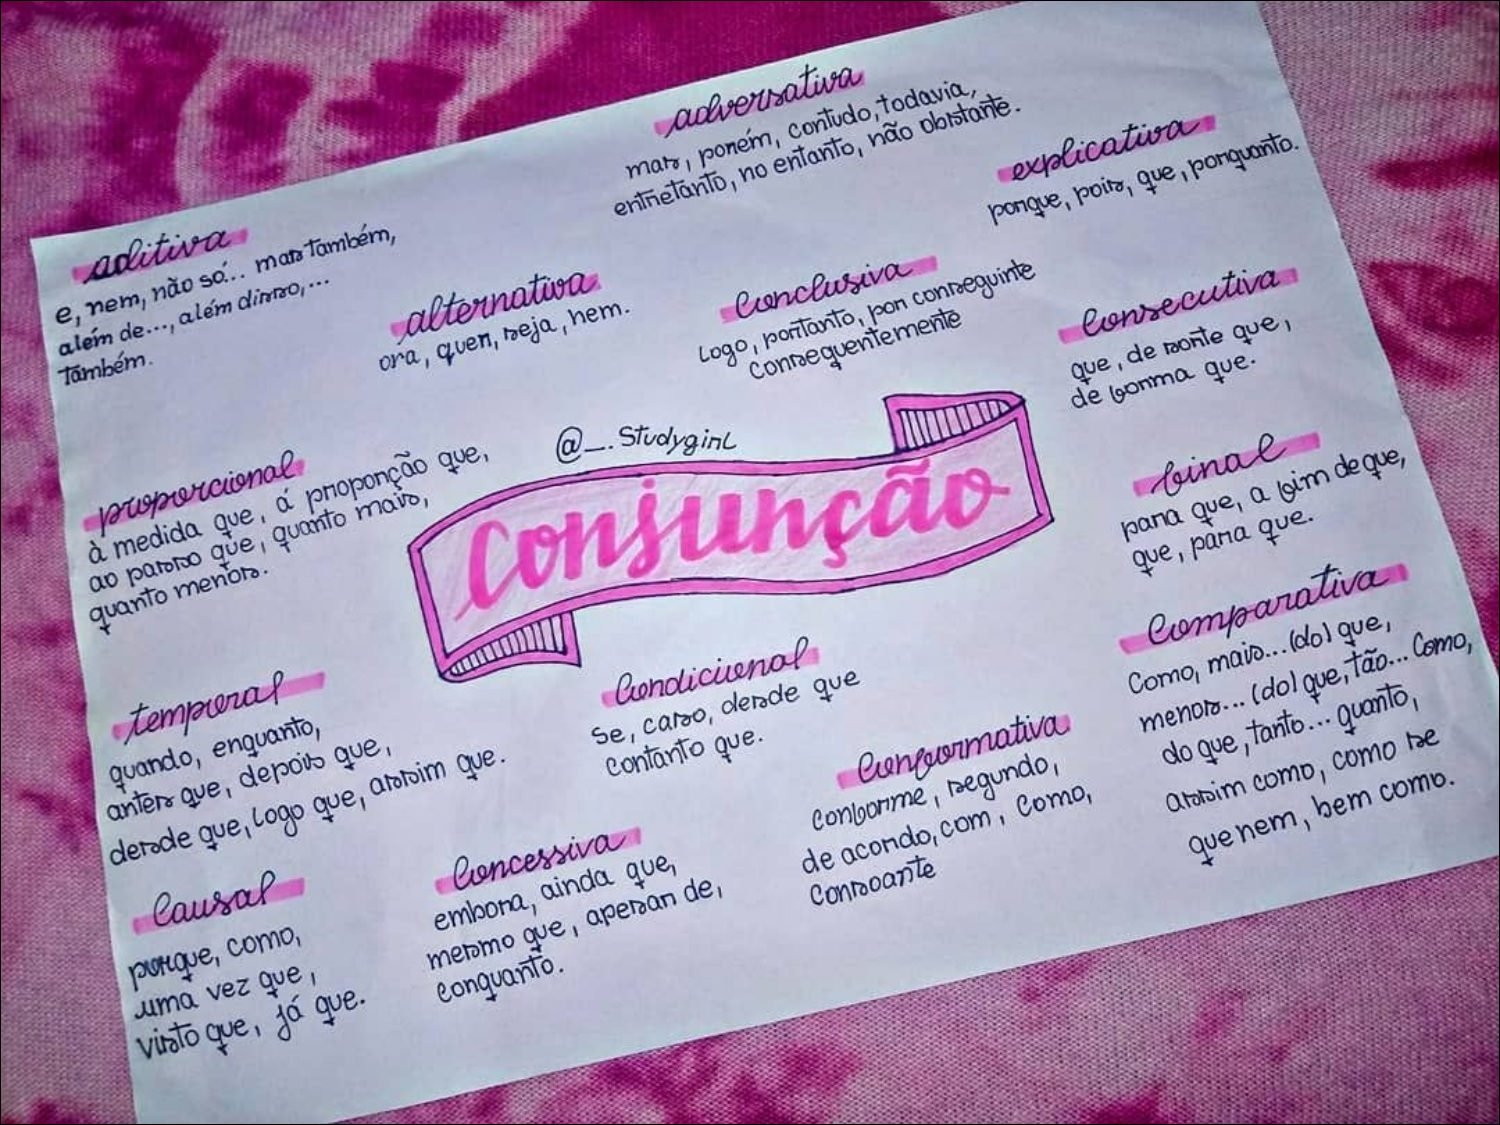 adversativa
mas, porém, contudo, todavia,
entretanto, no entanto, não obstante.
explicativa
porque, pois, que, porquanto.
aditiva
e, nem, não só... mas também,
além de..., além disso,...
também.
alternativa
ora, quer, seja, nem.
Conclusiva
Logo, portanto, por conseguinte
consequentemente
Consecutiva
que, de sorte que,
de forma que.
@_. Studygirl
Conjunção
proporcional
à medida que, á proporção que,
ao passo que, quanto mais,
quanto menos.
final
para que, a fim de que,
que, para que.
Comparativa
Como, mais... (do) que,
menos... (do) que, tão... Como,
do que, tanto... quanto,
assim como, como se
que nem, bem como.
temporal
quando, enquanto,
antes que, depois que,
desde que, logo que, assim que.
Condicional
se, caso, desde que
contanto que.
Conformativa
conforme, segundo,
de acordo, com, Como,
Consoante
Causal
porque, como,
uma vez que,
visto que, já que.
Concessiva
embora, ainda que,
mesmo que, apesar de,
conquanto.